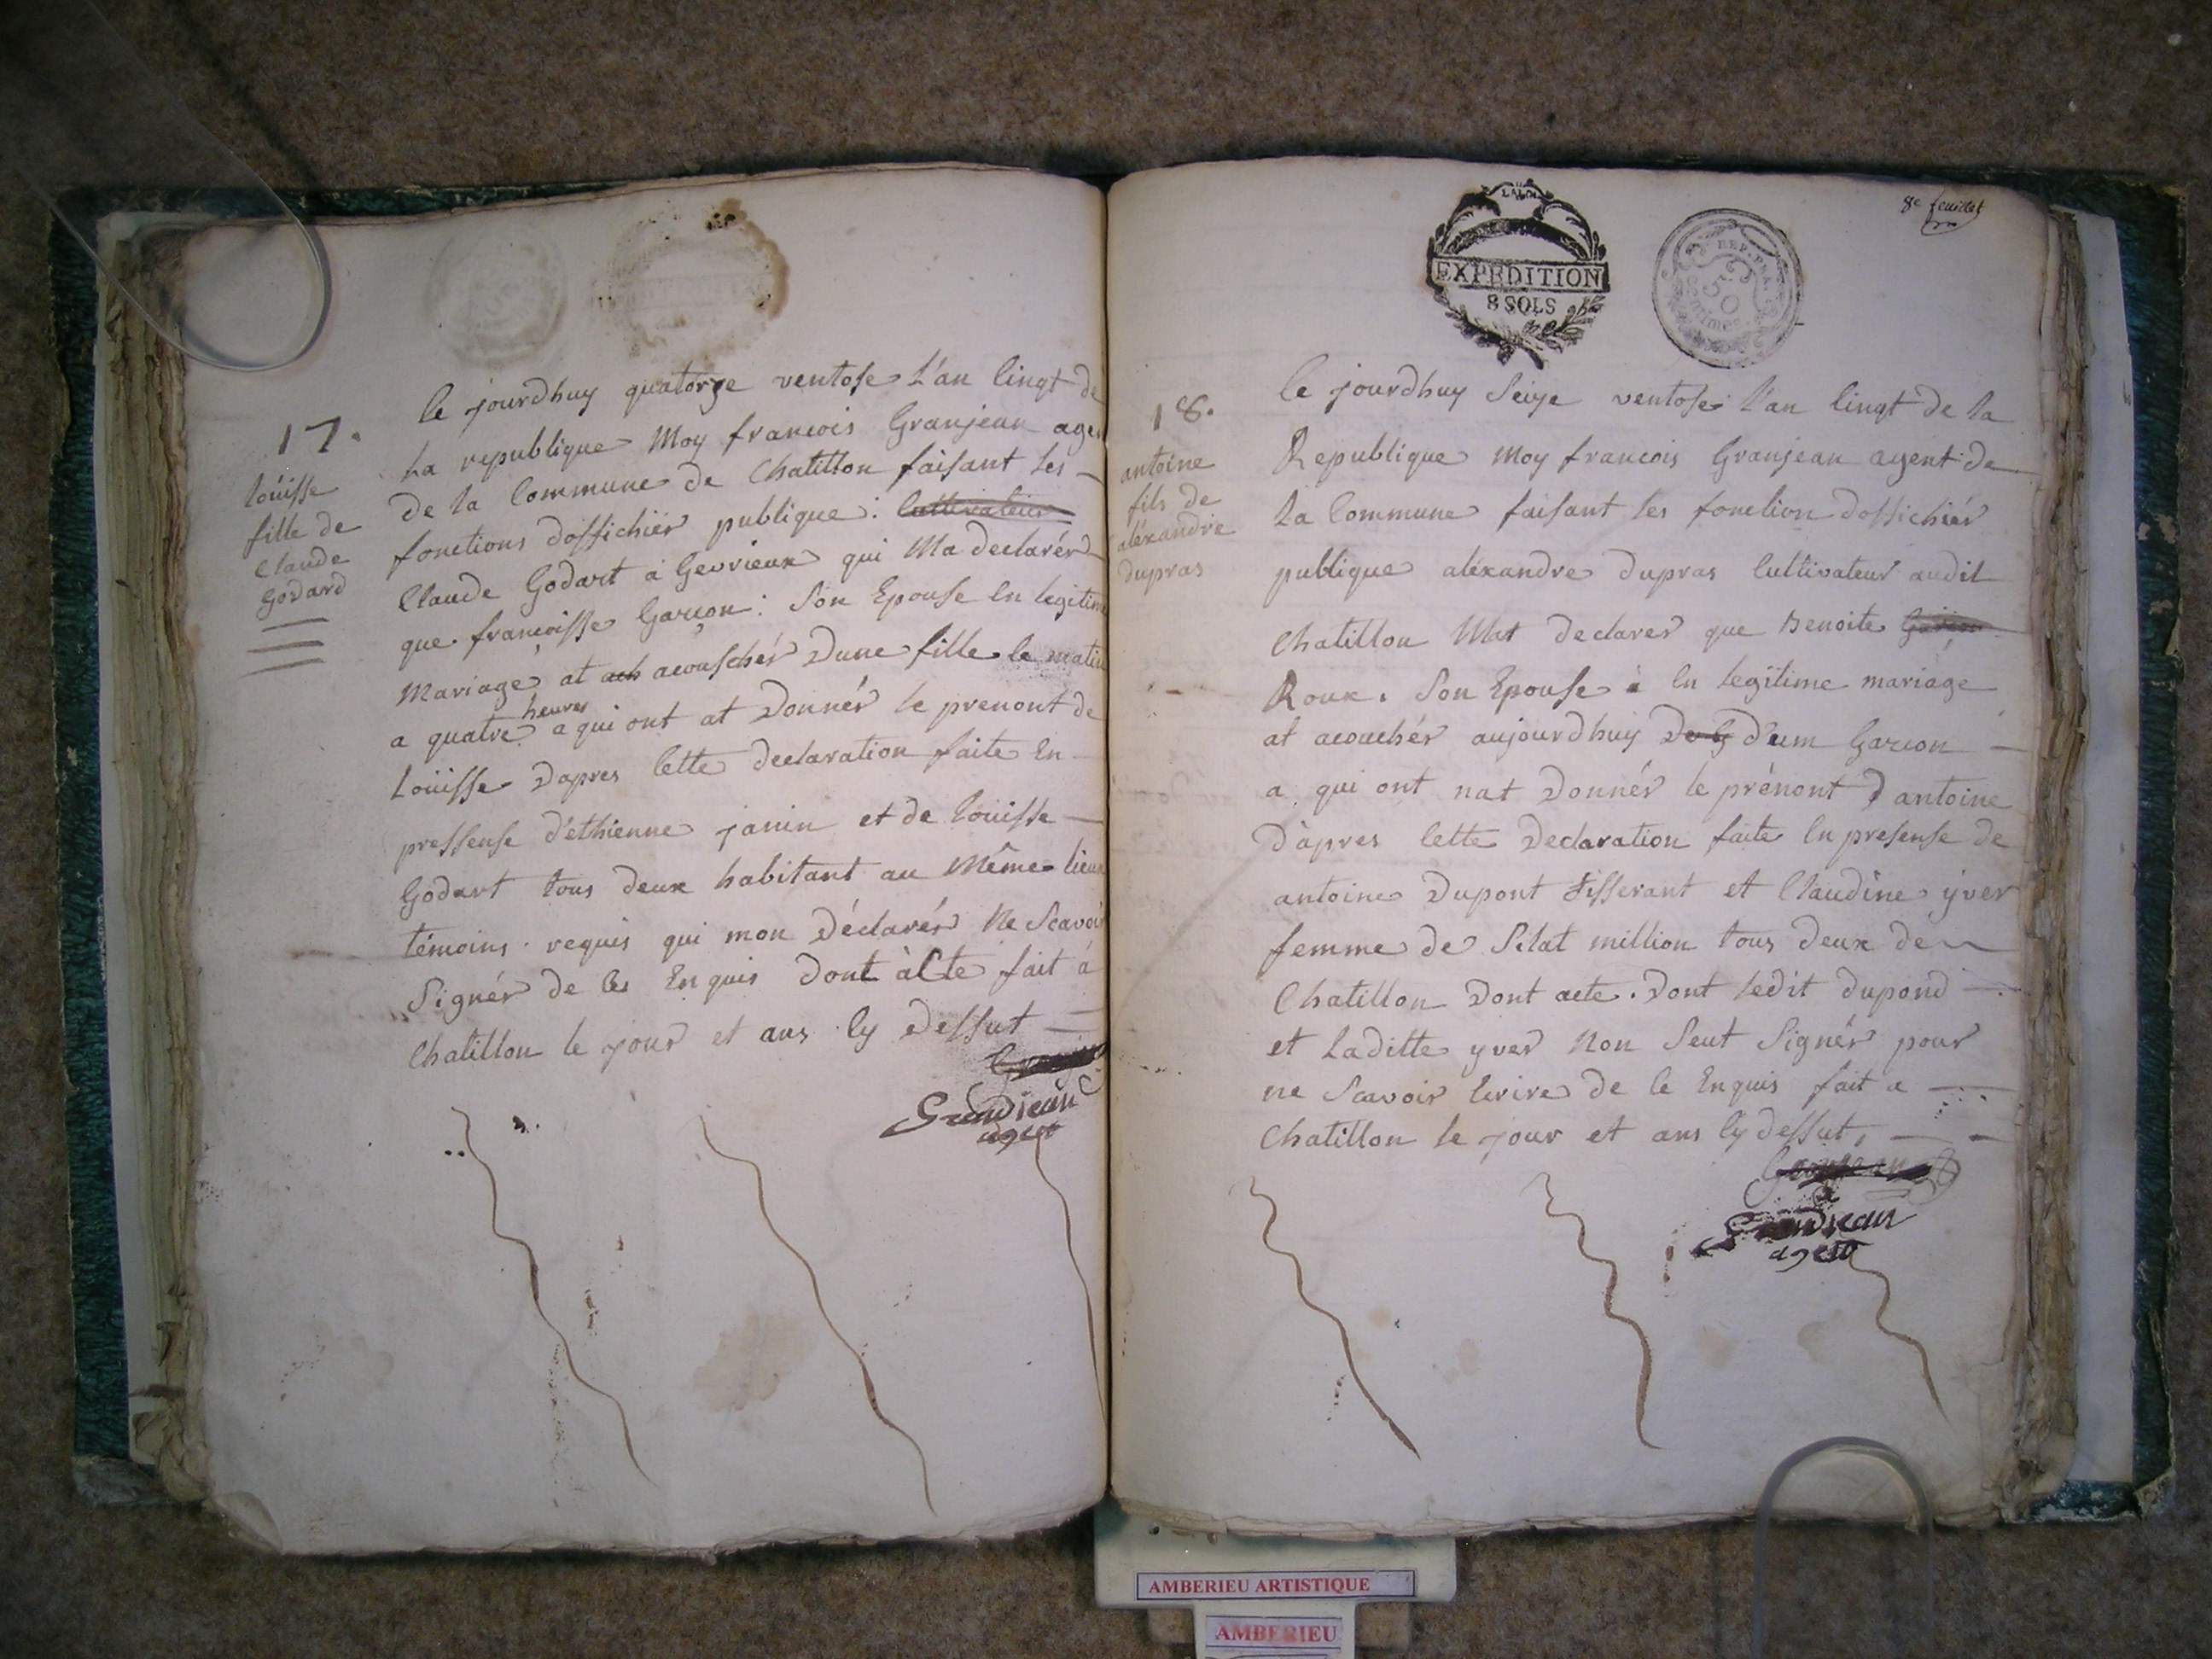 17.
loüisse
fille de
Claude
Godard
Ce jourdhuy quatorze ventose L'an Cinqt de
La republique Moy francois Granjean agen
de la Commune de Chatillon faisant les
fonctions doffichiér publique: Cultivateur
Claude Godart a Gevrieux qui Ma declarér
que francoisse Garçon: Son Epouse En legitim
Mariage at ach acouschér Dune fille le matin
heures
a quatre a qui ont at Donnér le prenont de
Loüisse Dapres Cette declaration faite En
pressense d'ethienne janin et de loüisse
Godart tous deux habitant au Même lieux
témoins requis qui mon Déclarér Ne Scavoir
Signér de Ces Enquis Dont àCte fait à
Chatillon le jour et ans Cy Dessut
Grandjean
agent
8e feuillet
LA LOI
EXPEDITION
8 SOLS
REP. FRA.
50
Centimes
18.
antoine
fils de
aléxandre
dupras
Ce jourdhuy Seize ventose L'an Cinqt de la
Republique Moy francois Granjean agent de
La Commune faisant les fonction doffichiér
publique aléxandre dupras Cultivateur audit
Chatillon Mat declarer que Benoite
Roux. Son Epouse à En legitime mariage
at acouchér aujourdhuy D'um Garcon
a qui ont nat Donnér le prénont D antoine
D'apres Cette Declaration faite En presense de
antoine Dupont tisserant et Claudine yver
femme de Pilat million tous deux de
Chatillon Dont acte. Dont ledit dupond
et Laditte yver Non Seut Signér pour
ne Scavoir Ecrire de Ce Enquis fait a
Chatillon le jour et ans Cy dessut,
Grandjean
agent
AMBERIEU ARTISTIQUE
AMBERIEU